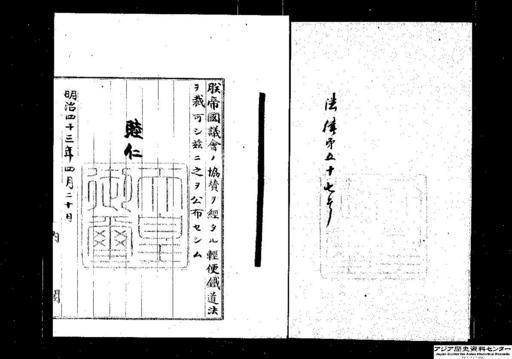 朕帝國議會ノ協賛ヲ經タル輕便鐵道法
ヲ裁可シ玆ニ之ヲ公布セシム
睦仁
天皇
御璽
明治四十三年四月二十日
内閣
法律第五十七号
アジア歴史資料センター
Japan Center for Asian Historical Records